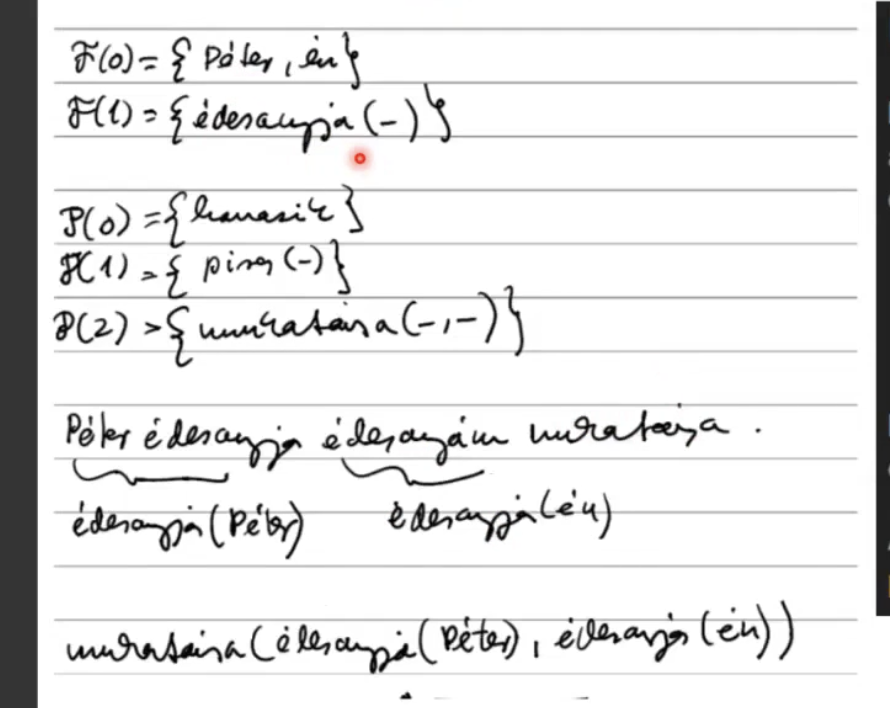 F(0) = { Péter, én }
F(1) = { édesanyja (-) }
P(0) = { havasik }
P(1) = { piros (-) }
P(2) = { munkatársa (-,-) }
Péter édesanyja édesanyám munkatársa.
édesanyja (Péter) édesanyja (én)
munkatársa (édesanyja (Péter), édesanyja (én))